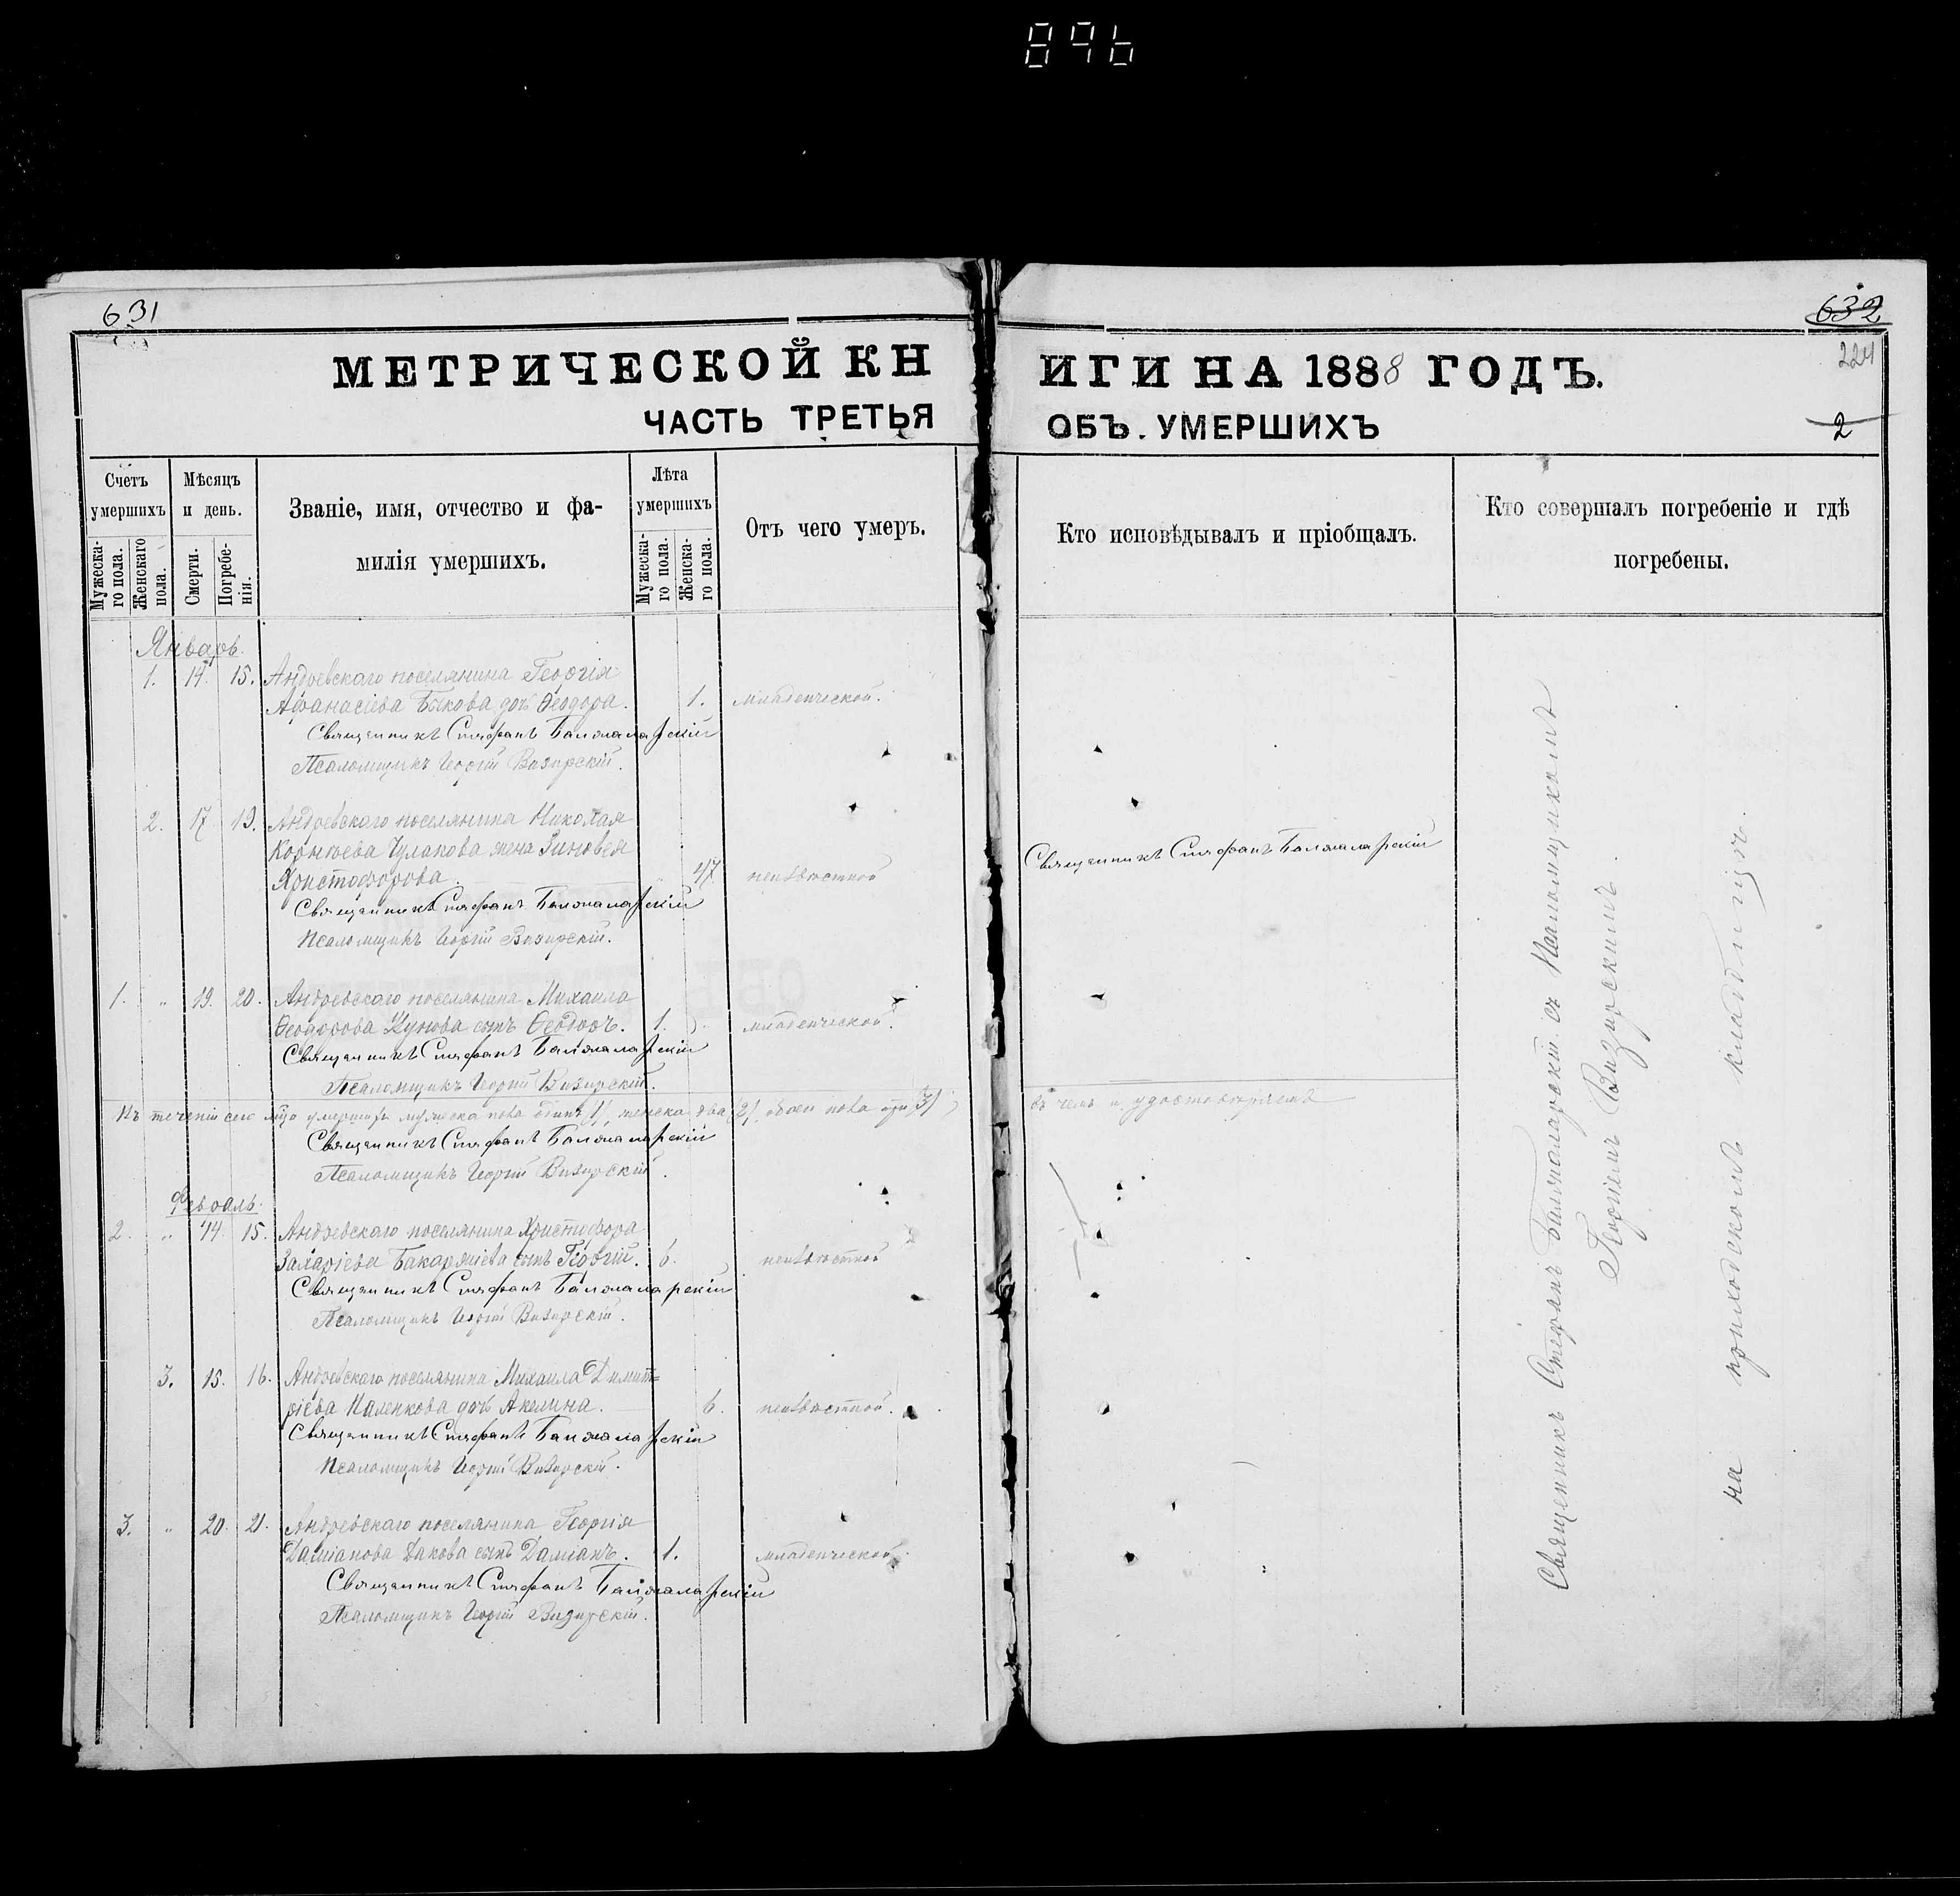 896
631
632
224
2
МЕТРИЧЕСКОЙ КНИГИ НА 1888 ГОДЪ.
ЧАСТЬ ТРЕТЬЯ ОБЪ. УМЕРШИХЪ
Счетъ умершихъ
Мужеска-го пола.
Женскаго пола.
Мѣсяцъ и день.
Смерти.
Погребе-нія.
Званіе, имя, отчество и фа-
милія умершихъ.
Лѣта умершихъ
Мужеска-го пола.
Женска-го пола.
Отъ чего умеръ.
Кто исповѣдывалъ и пріобщалъ.
Кто совершалъ погребеніе и гдѣ
погребены.
Январь.
1. 14. 15. Андреевскаго поселянина Георгія
Афанасіева Бѣкова дочь Ѳеодора. 1. младенческой.
Священникъ Стефанъ Балжаларскій
Псаломщикъ Георгій Визирскій.
2. 17 19. Андреевскаго поселянина Николая
Корнѣева Чулакова жена Зиновея
Христофорова. 47 неизвѣстной
Священникъ Стефанъ Балжаларскій
Священникъ Стефанъ Балжаларскій
Псаломщикъ Георгій Визирскій.
1. " 19. 20. Андреевскаго поселянина Михаила
Ѳеодорова Кунова сынъ Ѳеодоръ. 1. младенческой.
Священникъ Стефанъ Балжаларскій
Псаломщикъ Георгій Визирскій.
Въ теченіи сего м-ца умершихъ мужеска пола одинъ /1/, женска два /2/, обоего пола три /3/
въ чемъ и удостовѣряемъ
Священникъ Стефанъ Балжаларскій
Псаломщикъ Георгій Визирскій.
Февраль.
2. " 14 15. Андреевскаго поселянина Христофора
Захаріева Бакаржіева сынъ Георгій. 6. неизвѣстной
Священникъ Стефанъ Балжаларскій
Псаломщикъ Георгій Визирскій.
3. 15. 16. Андреевскаго поселянина Михаила Димит=
ріева Каленкова дочь Акелина. 6. неизвѣстной.
Священникъ Стефанъ Балжаларскій
Псаломщикъ Георгій Визирскій.
3. " 20. 21. Андреевскаго поселянина Георгія
Даміанова Дакова сынъ Даміанъ. 1. младенческой
Священникъ Стефанъ Балжаларскій
Псаломщикъ Георгій Визирскій.
Священникъ Стефанъ Балжаларскій съ Псаломщикомъ
Георгіемъ Визирскимъ.
на приходскомъ кладбищѣ.